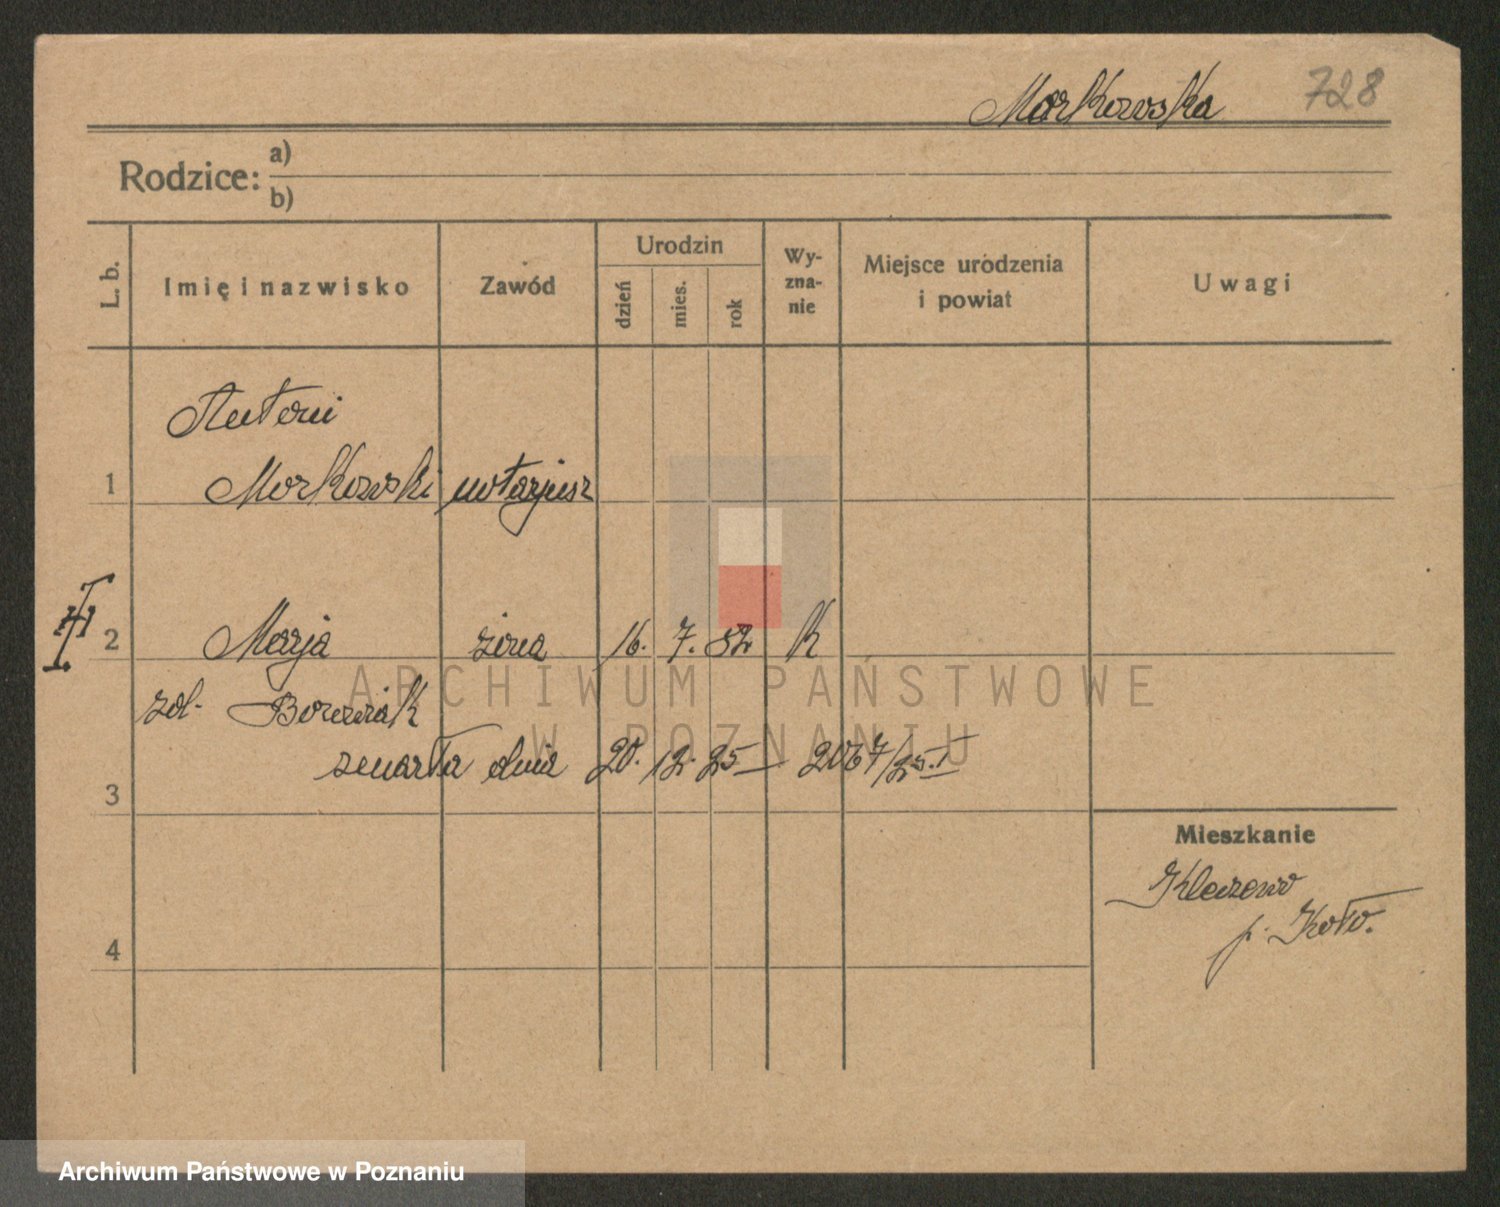 Markowska 728
Rodzice: a)
b)
L. b. Imię i nazwisko Zawód Urodzin dzień mies. rok Wy-zna-nie Miejsce urodzenia i powiat Uwagi
Antoni
1 Markowski notarjusz
2 Marja żona 16. 7. 52 K
ARCHIWUM PAŃSTWOWE
zol. Borowiak
W POZNANIU
zmarła dnia 20. 12. 25 2067/25.I
3
Mieszkanie
Kleczewo
p. Koło.
4
Archiwum Państwowe w Poznaniu